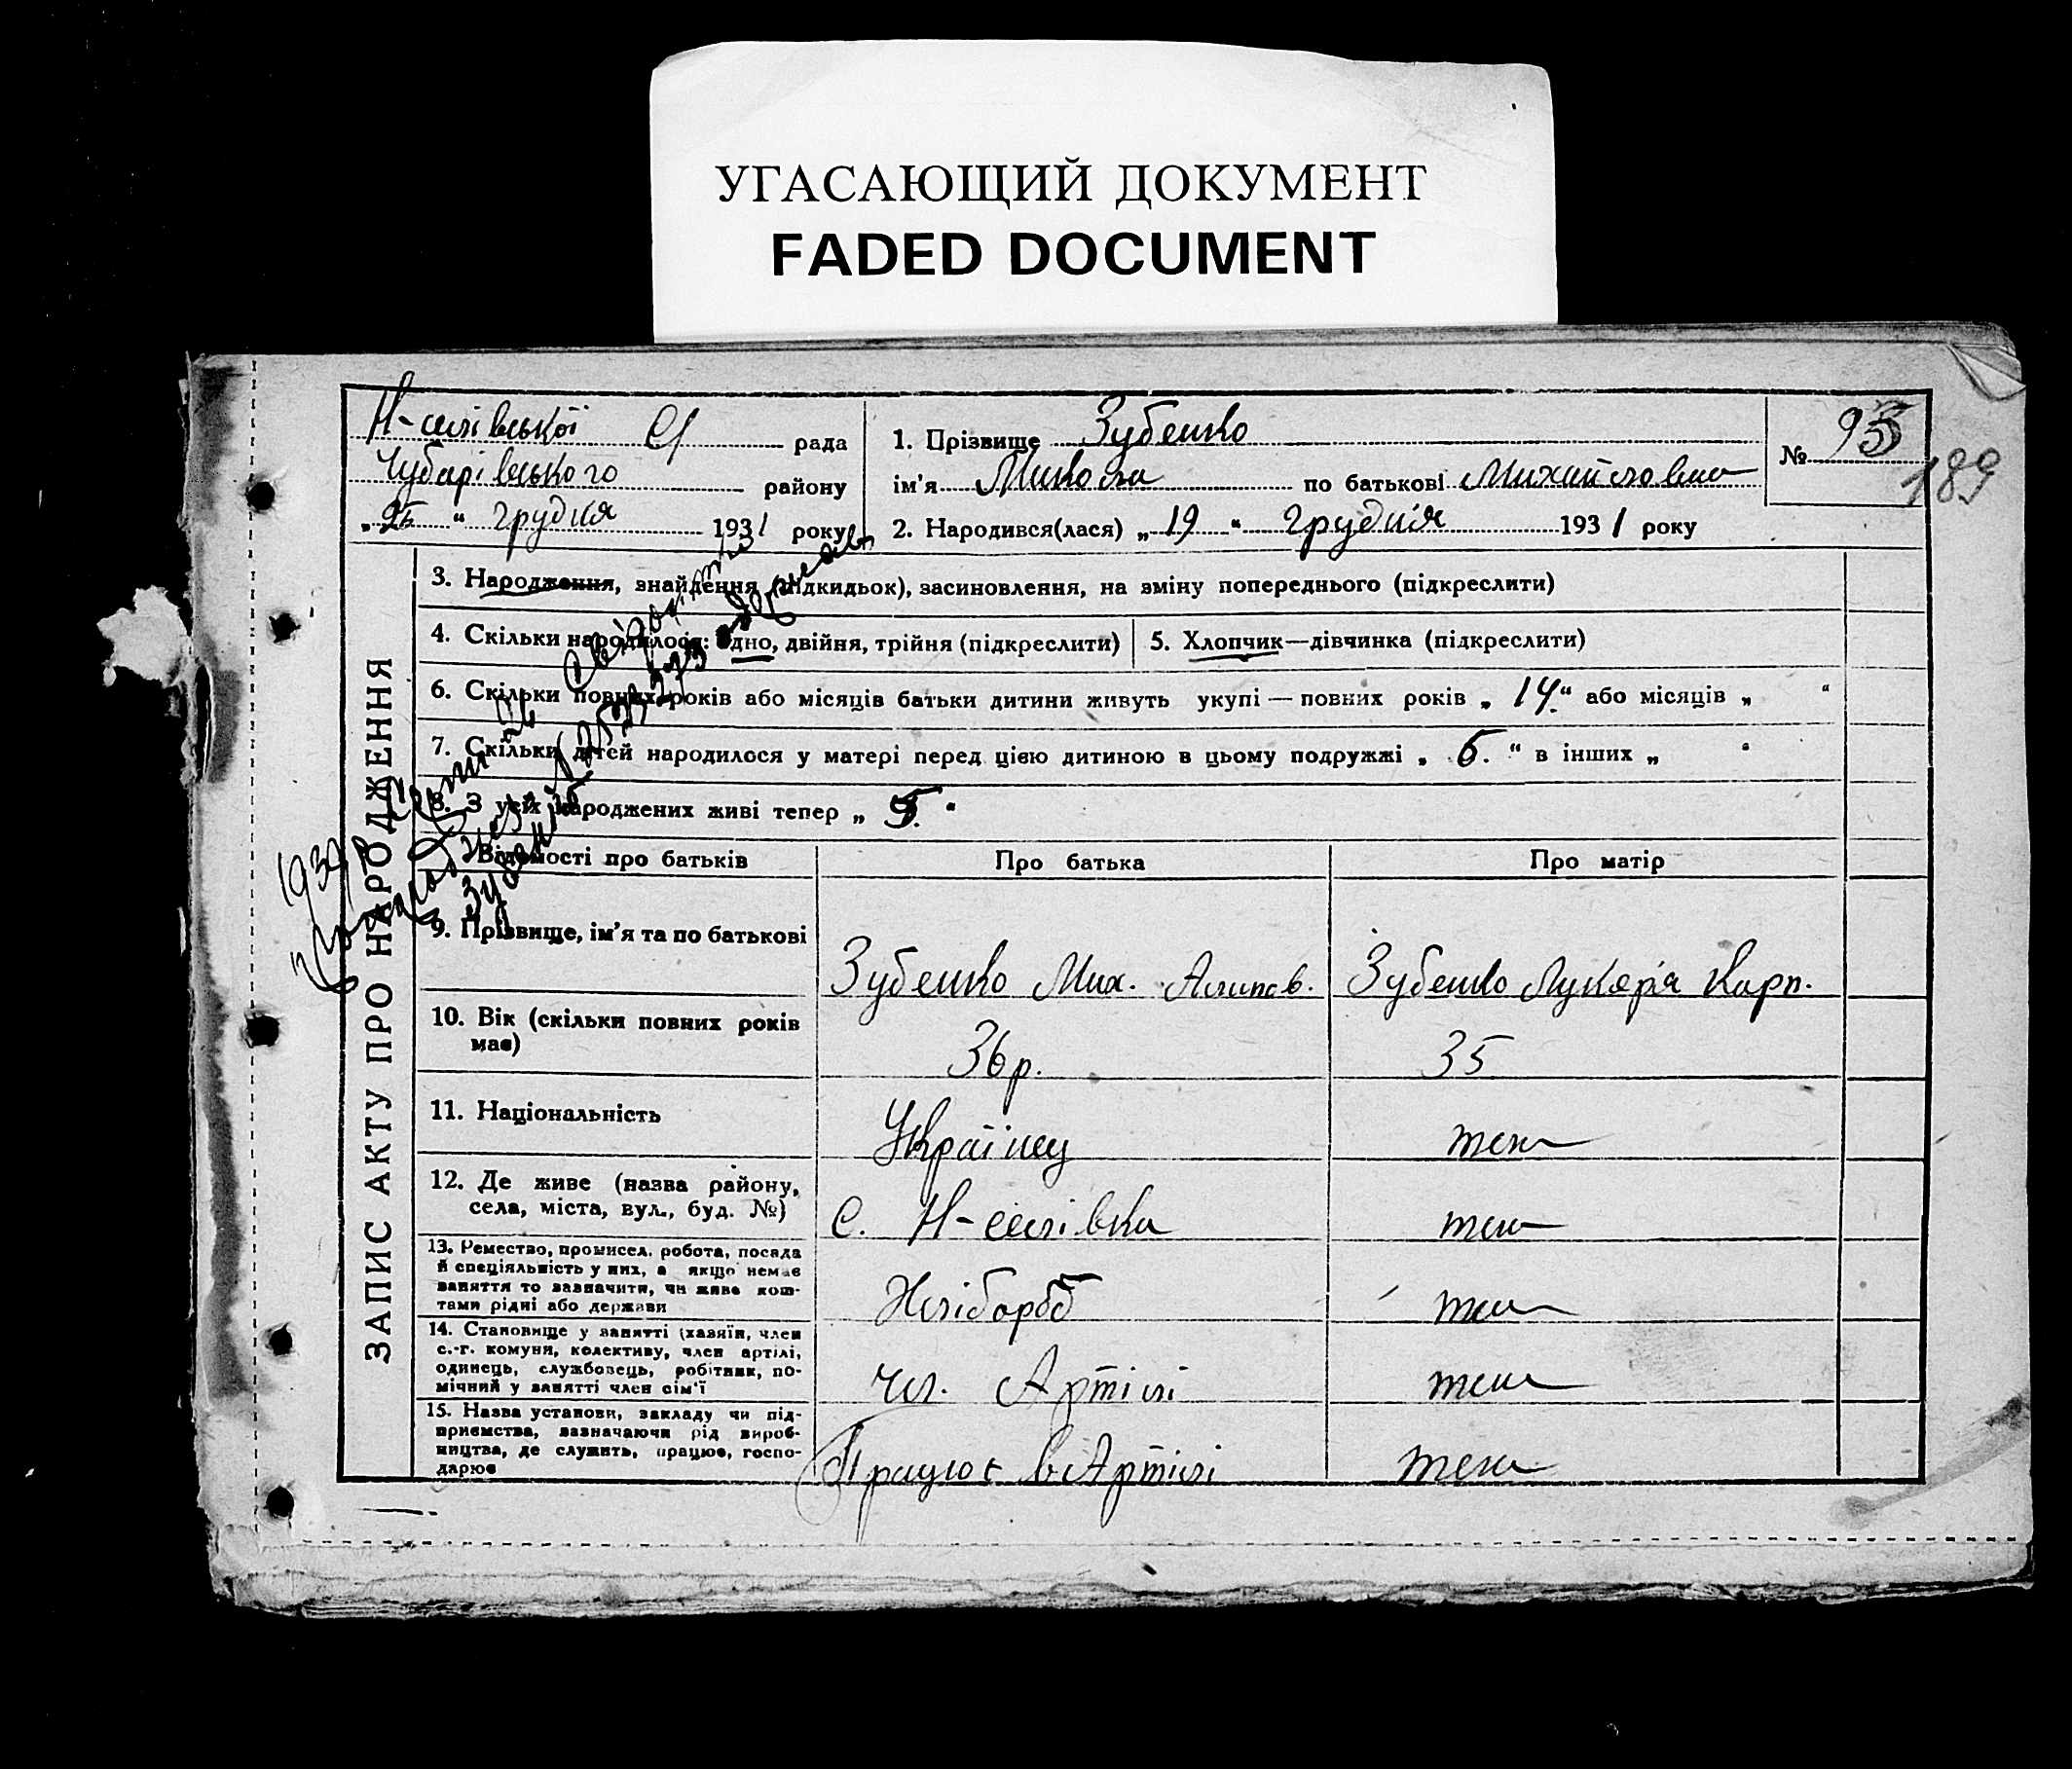 УГАСАЮЩИЙ ДОКУМЕНТ
FADED DOCUMENT
Н-селівської С/ рада
Чубарівського району
„25“ грудня 1931 року
1. Прізвище Зубенко
ім'я Микола по батькові Михайлович
2. Народився(лася) „19“ грудня 1931 року
№ 95
189
ЗАПИС АКТУ ПРО НАРОДЖЕННЯ
3. Народження, знайдення (підкидьок), засиновлення, на зміну попереднього (підкреслити)
4. Скільки народилося: одно, двійня, трійня (підкреслити)
5. Хлопчик—дівчинка (підкреслити)
6. Скільки повних років або місяців батьки дитини живуть укупі — повних років „ 14 “ або місяців „ “
7. Скільки дітей народилося у матері перед цією дитиною в цьому подружжі „ 6. “ в інших „ “
8. З усіх народжених живі тепер „ 5. “
Відомості про батьків
Про батька
Про матір
9. Прізвище, ім'я та по батькові
Зубенко Мих.
Зубенко Лукер'я Карп.
10. Вік (скільки повних років
має)
36 р.
35
11. Національність
Українец
теж
12. Де живе (назва району,
села, міста, вул., буд. №)
с. Н-селівка
теж
13. Ремество, промисел, робота, посада
й спеціяльність у них, а якщо немає
заняття то зазначити, чи живе кош-
тами рідні або держави
Хлібороб
теж
14. Становище у занятті (хазяїн, член
с.-г. комуни, колективу, член артілі,
одинець, службовець, робітник, по-
мічний у занятті член сім'ї
чл. Артілі
теж
15. Назва установи, закладу чи під-
приємства, зазначаючи рід вироб-
ництва, де служить, працює, госпо-
дарює
Працює в Артілі
теж